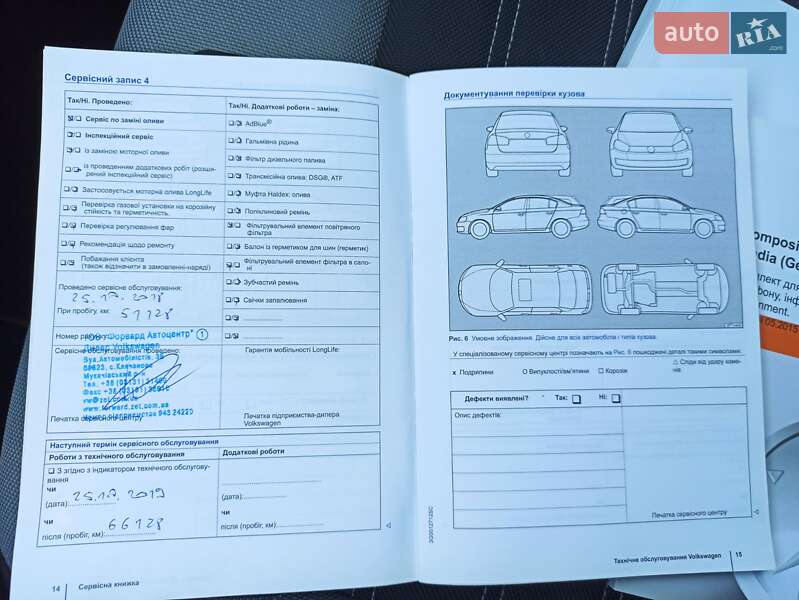 auto RIA .com
Сервісний запис 4
Так/Ні. Проведено:
Сервіс по заміні оливи
Інспекційний сервіс
із заміною моторної оливи
із проведенням додаткових робіт (розши-
рений інспекційний сервіс)
Застосовується моторна олива LongLife
Перевірка газової установки на корозійну
стійкість та герметичність.
Перевірка регулювання фар
Рекомендація щодо ремонту
Побажання клієнта
(також відзначити в замовленні-наряді)
Проведено сервісне обслуговування:
При пробігу, км: 51128
Номер
"Форвард Автоцентр" 1
Volkswagen
Сервісне обслуговування проведено:
Вул. Автомобілістів,
89623, с. Клячаново
Мукачівський р-н
www.forward.zet.com.ua
Печатка сервісного центру
Так/Ні. Додаткові роботи – заміна:
AdBlue®
Гальмівна рідина
Фільтр дизельного палива
Трансмісійна олива: DSG®, ATF
Муфта Haldex: олива
Поліклиновий ремінь
Фільтрувальний елемент повітряного
фільтра
Балон із герметиком для шин (герметик)
Фільтрувальний елемент фільтра в сало-
ні
Зубчастий ремінь
Свічки запалювання
Гарантія мобільності LongLife:
Печатка підприємства-дилера
Volkswagen
Наступний термін сервісного обслуговування
Роботи з технічного обслуговування
З згідно з індикатором технічного обслугову-
вання
чи
(дата): 25.12.2019
чи
66128
після (пробіг, км):
Додаткові роботи
(дата):
чи
після (пробіг, км):
14 Сервісна книжка
Документування перевірки кузова
Рис. 6 Умовне зображення. Дійсне для всіх автомобілів і типів кузова.
У спеціалізованому сервісному центрі позначають на Рис. 6 пошкоджені деталі такими символами:
x Подряпини
O Випуклості/вм'ятини
Корозія
△ Сліди від удару каме-
нів
Дефекти виявлені?
Так:
Ні:
Опис дефектів:
Печатка сервісного центру
Технічне обслуговування Volkswagen 15